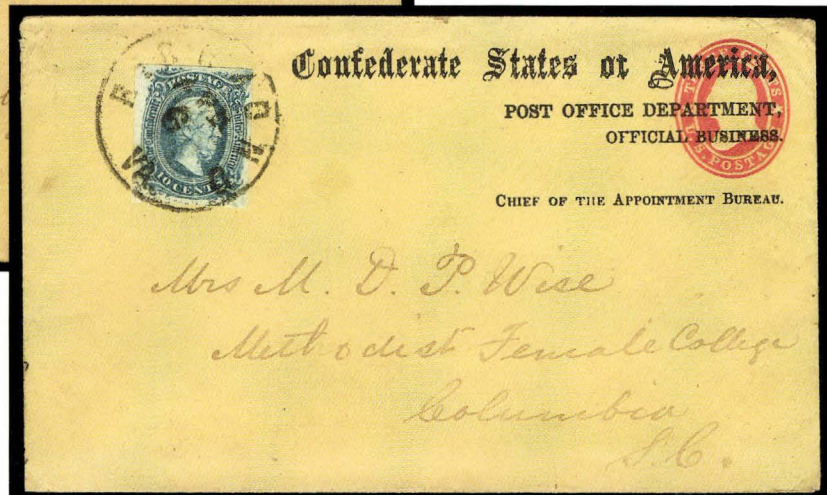 Confederate States of America,
POST OFFICE DEPARTMENT,
OFFICIAL BUSINESS.
CHIEF OF THE APPOINTMENT BUREAU.
POSTAGE
TEN CENTS
U.S. POSTAGE
VA.
Mrs M. D. P. Wise
Methodist Female College
Columbia
S.C.